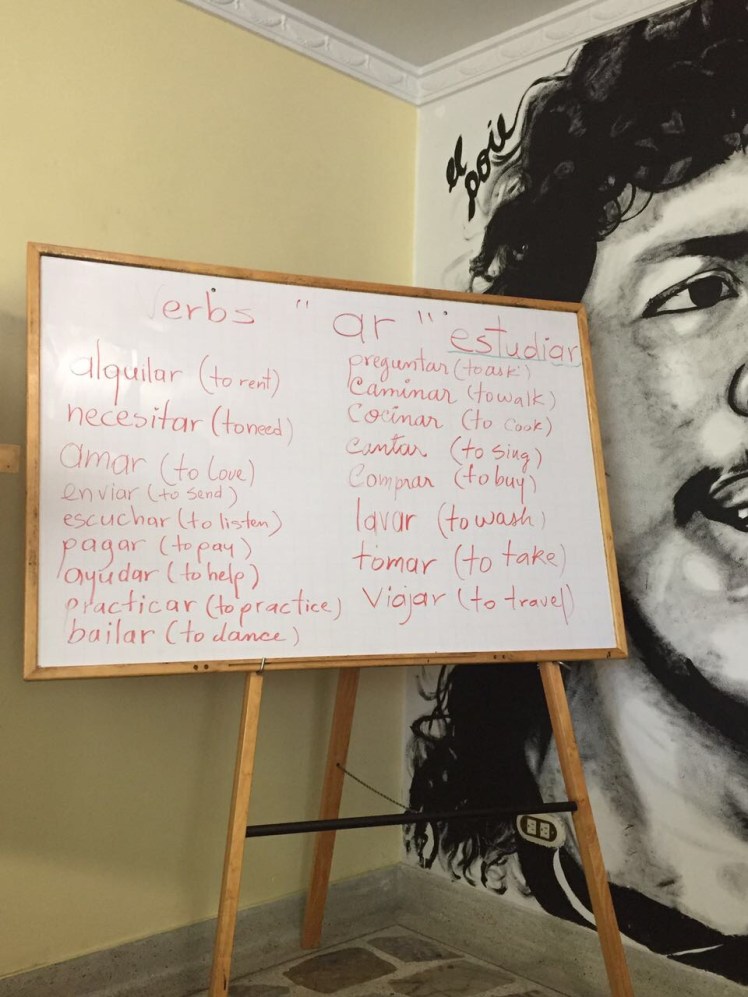 Verbs "ar" estudiar
alquilar (to rent)
necesitar (to need)
amar (to love)
enviar (to send)
escuchar (to listen)
pagar (to pay)
ayudar (to help)
practicar (to practice)
bailar (to dance)
preguntar (to ask)
Caminar (to walk)
Cocinar (to cook)
cantar (to sing)
Comprar (to buy)
lavar (to wash)
tomar (to take)
Viajar (to travel)
el
poie